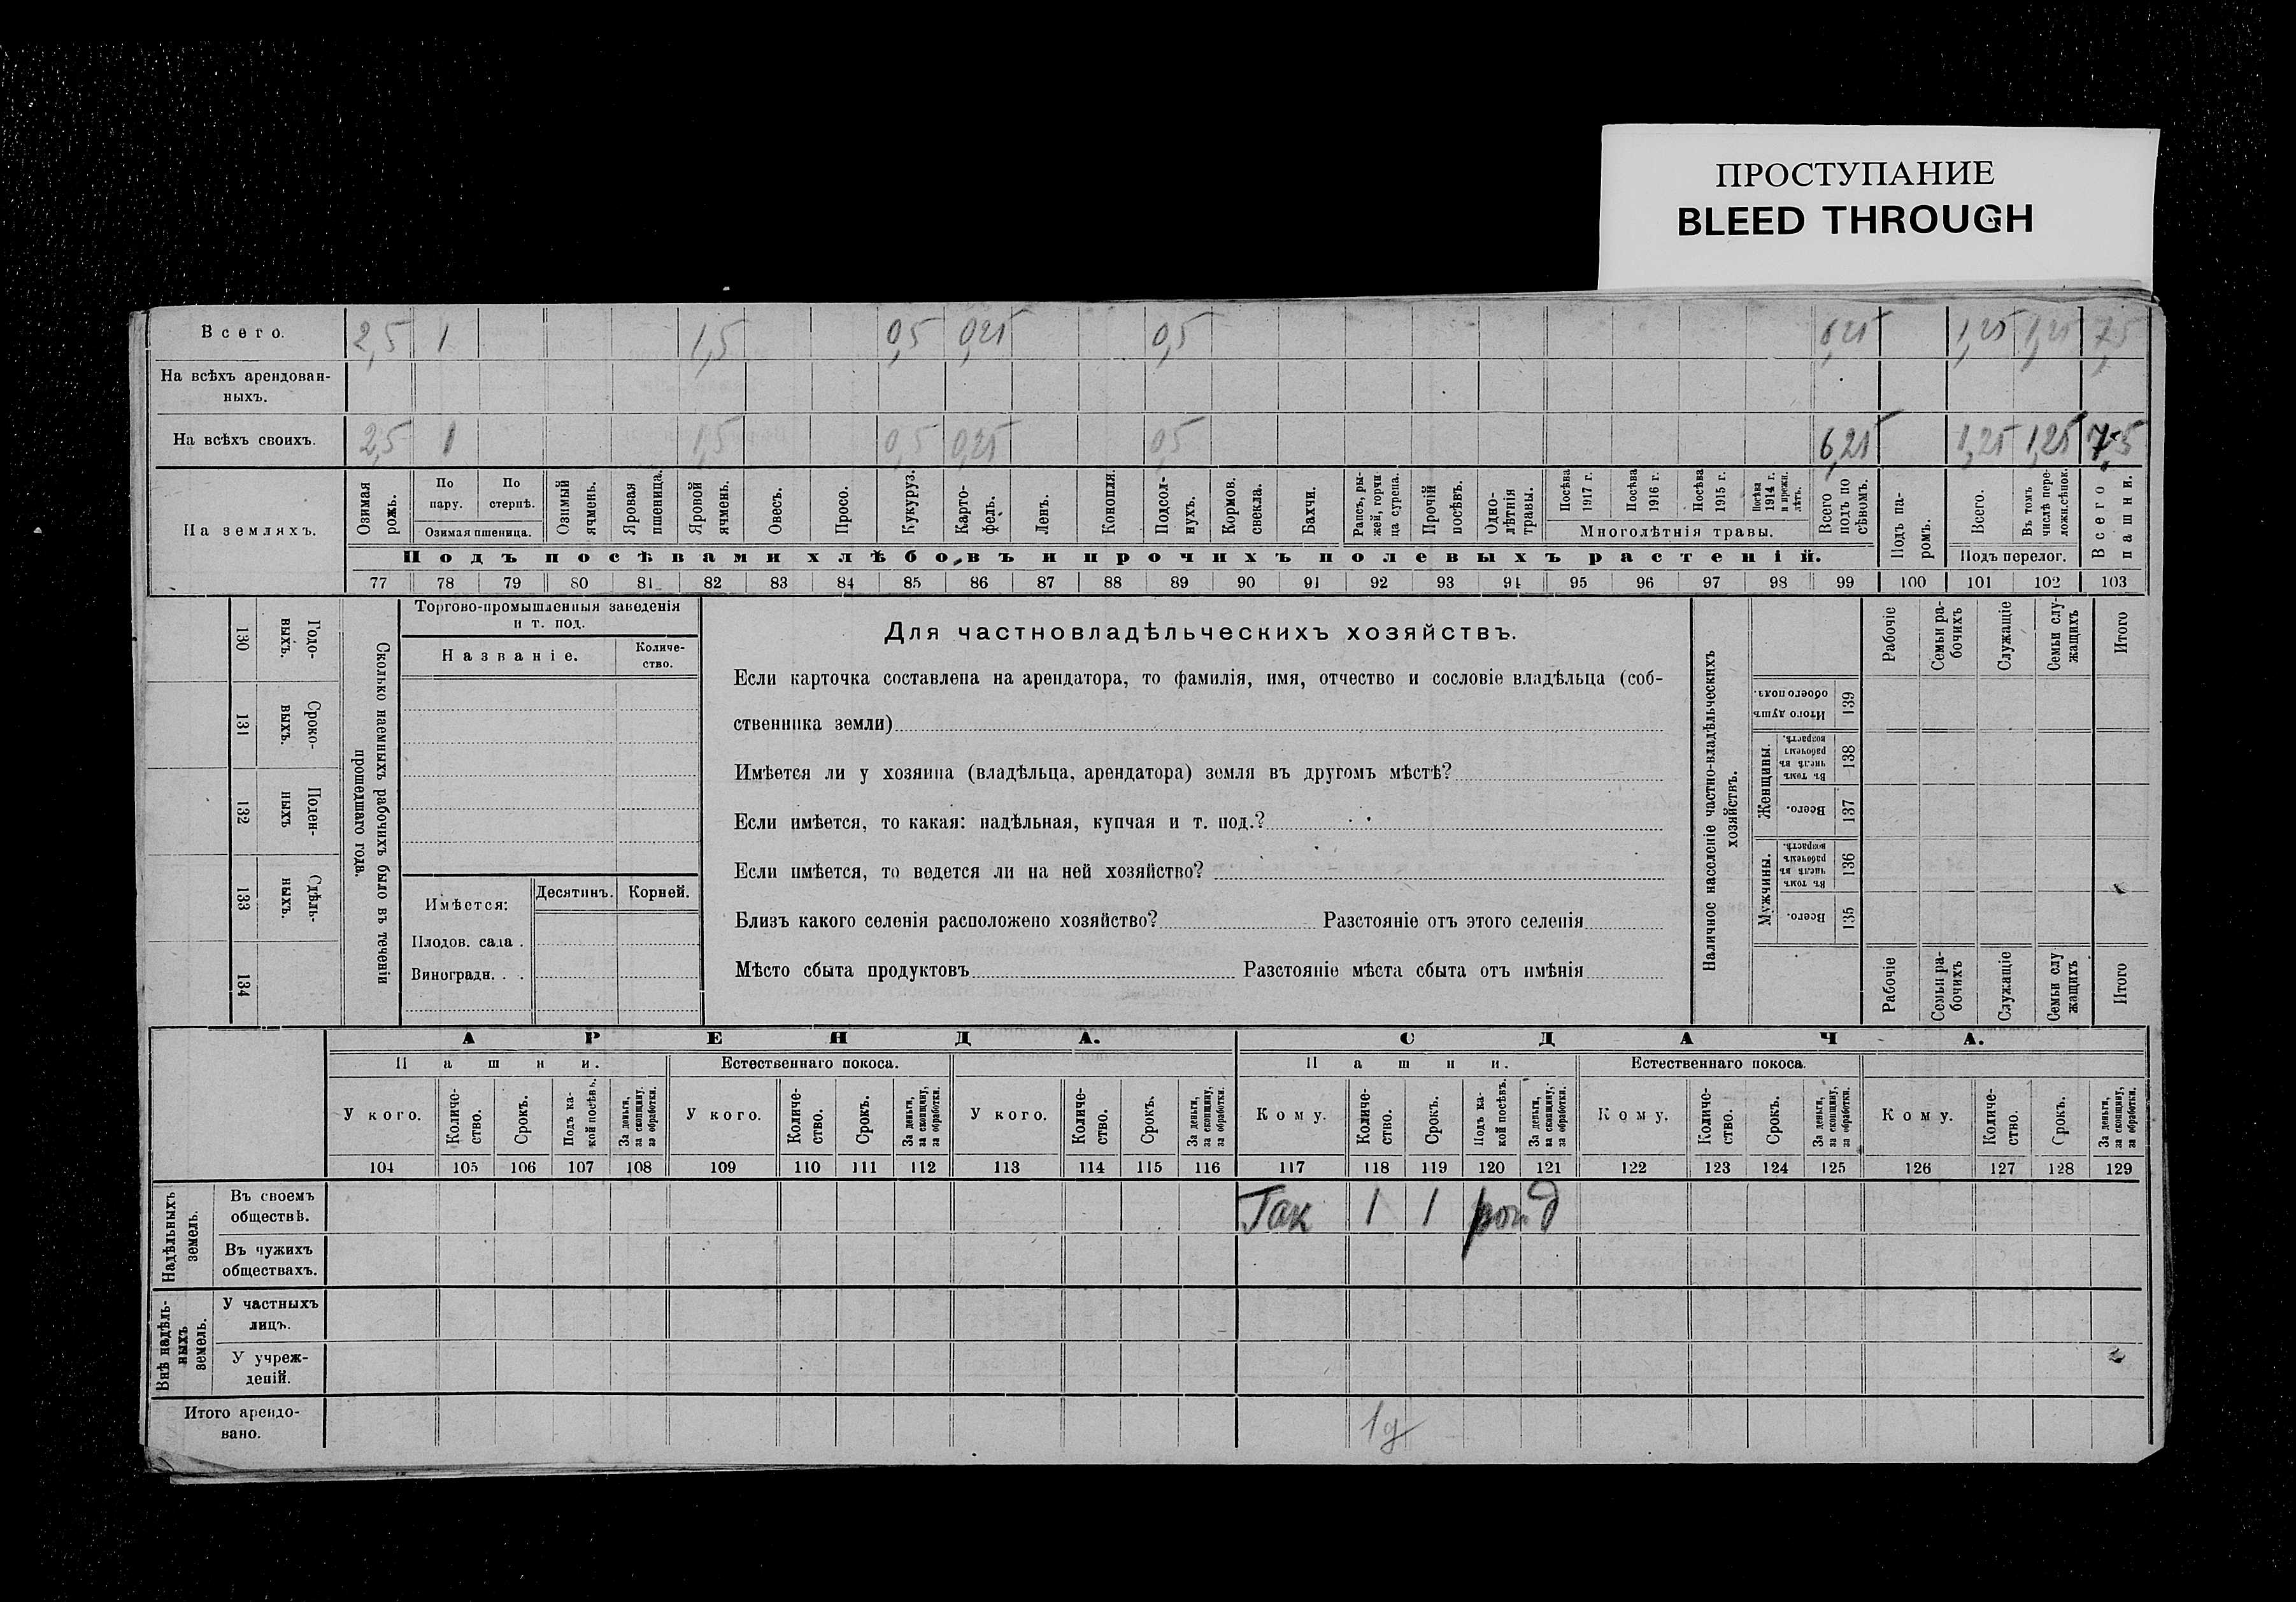 ПРОСТУПАНИЕ
BLEED THROUGH
Всего. 2,5 1 1,5 0,5 0,25 0,5 6,25 1,25 1,25 7,5
На всѣхъ арендован-
ныхъ.
На всѣхъ своихъ. 2,5 1 1,5 0,5 0,25 0,5 6,25 1,25 1,25 7,5
На земляхъ.
Озимая рожь.
По пару.
По стернѣ.
Озимая пшеница.
Озимый ячмень.
Яровая пшеница.
Яровой ячмень.
Овесъ.
Просо.
Кукуруз.
Карто-
фель.
Ленъ.
Конопля.
Подсол-
нухъ.
Кормов. свекла.
Бахчи.
Рапсъ, ры-
жей, горчи
ца сурепа.
Прочій посѣвъ.
Одно-
лѣтнія
травы.
Посѣва 1917 г.
Посѣва 1916 г.
Посѣва 1915 г.
Посѣва 1914 г. и прежн. лѣтъ.
Многолѣтнія травы.
Всего подъ по
сѣвомъ.
Подъ па-
ромъ.
Всего.
Въ томъ числѣ пере-
ложн. сѣнок.
Подъ перелог.
Всего пашни.
Подъ посѣвами хлѣбовъ и прочихъ полевыхъ растеній.
77 78 79 80 81 82 83 84 85 86 87 88 89 90 91 92 93 94 95 96 97 98 99 100 101 102 103
130 Годо-
выхъ.
131 Сроко-
выхъ.
132 Поден-
ныхъ
133 Сдѣль-
ныхъ.
134
Сколько наемныхъ рабочихъ было въ теченіи
прошедшаго года.
Торгово-промышленныя заведенія
и т. под.
Названіе. Количе-
ство.
Имѣется: Десятинъ. Корней.
Плодов. сада .
Виноградн. . .
Для частновладѣльческихъ хозяйствъ.
Если карточка составлена на арендатора, то фамилія, имя, отчество и сословіе владѣльца (соб-
ственника земли)
Имѣется ли у хозяина (владѣльца, арендатора) земля въ другомъ мѣстѣ?
Если имѣется, то какая: надѣльная, купчая и т. под.?
Если имѣется, то ведется ли на ней хозяйство?
Близъ какого селенія расположено хозяйство? Разстояніе отъ этого селенія
Мѣсто сбыта продуктовъ Разстояніе мѣста сбыта отъ имѣнія
Наличное населеніе частно-владѣльческихъ
хозяйствъ.
Рабочіе
Семьи ра-
бочихъ
Служащіе
Семьи слу-
жащихъ
Итого
Итого душъ обоего полъ. 139
Женщины.
Въ томъ числѣ въ рабочемъ возрастѣ. 138
Всего. 137
Мужчины.
Въ томъ числѣ въ рабочемъ возрастѣ. 136
Всего. 135
Рабочіе
Семьи ра-
бочихъ
Служащіе
Семьи слу
жащихъ
Итого
АРЕНДА. СДАЧА.
Пашни. Естественнаго покоса. Пашни. Естественнаго покоса.
У кого. Количе-
ство. Срокъ. Подъ ка-
кой посѣвъ. За деньги, за скопщину, за обработки.
У кого. Количе-
ство. Срокъ. За деньги, за скопщину, за обработки.
У кого. Количе-
ство. Срокъ. За деньги, за скопщину, за обработки.
Кому. Количе-
ство. Срокъ. Подъ ка-
кой посѣвъ. За деньги, за скопщину, за обработки.
Кому. Количе-
ство. Срокъ. За деньги, за скопщину, за обработки.
Кому. Количе-
ство. Срокъ. За деньги, за скопщину, за обработки.
104 105 106 107 108 109 110 111 112 113 114 115 116 117 118 119 120 121 122 123 124 125 126 127 128 129
Надѣльныхъ
земель.
Въ своемъ
обществѣ. Так 1 1 д
Въ чужихъ
обществахъ.
Внѣ надѣль-
ныхъ
земель.
У частныхъ
лицъ.
У учреж-
деній.
Итого арендо-
вано. 1д